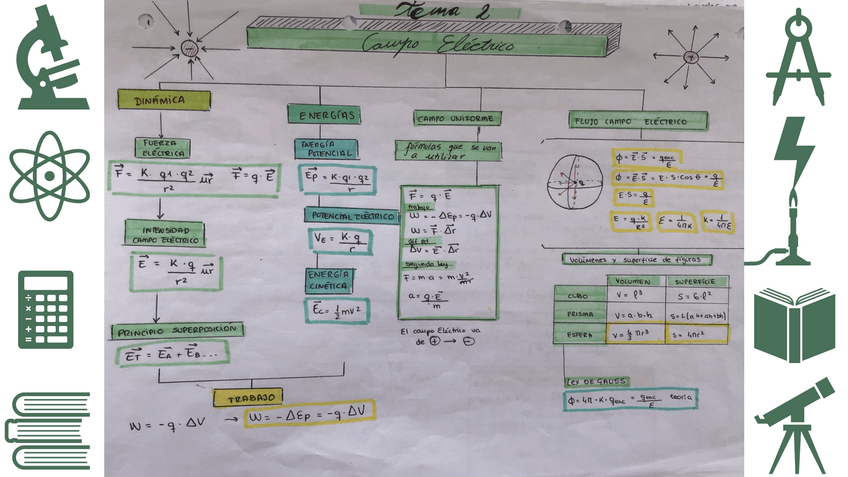 Tema 2
Campo Eléctrico
DINÁMICA
FUERZA
ELÉCTRICA
F = K · q1 · q2 / r² ur    F = q · E
INTENSIDAD
CAMPO ELÉCTRICO
E = K · q / r² ur
PRINCIPIO SUPERPOSICIÓN
ET = EA + EB ...
ENERGÍAS
ENERGÍA
POTENCIAL
Ep = K · q1 · q2 / r
POTENCIAL ELÉCTRICO
VE = K · q / r
ENERGÍA
CINÉTICA
Ec = 1/2 mv²
TRABAJO
W = - q · ΔV → W = - ΔEp = - q · ΔV
CAMPO UNIFORME
fórmulas que se van
a utilizar
F = q · E
Trabajo
W = - ΔEp = - q · ΔV
W = F · Δr
ΔV = E · Δr
Segunda ley
F = m · a = m · v²
a = q · E / m
El campo Eléctrico va
de + → -
FLUJO CAMPO ELÉCTRICO
ϕ = E · S = qenc / ε
ϕ = E · S = E · S · cos θ = q / ε
E · S = q / ε
E = q · K / R²    E = 1 / 4πK    K = 1 / 4πε
Volúmenes y superficie de figuras
VOLUMEN    SUPERFICIE
CUBO    V = l³    S = 6 · l²
PRISMA    V = a · b · h
ESFERA    V = 4/3 πr³    S = 4πr²
LEY DE GAUSS
ϕ = 4π · K · qenc = qenc / ε    teoría